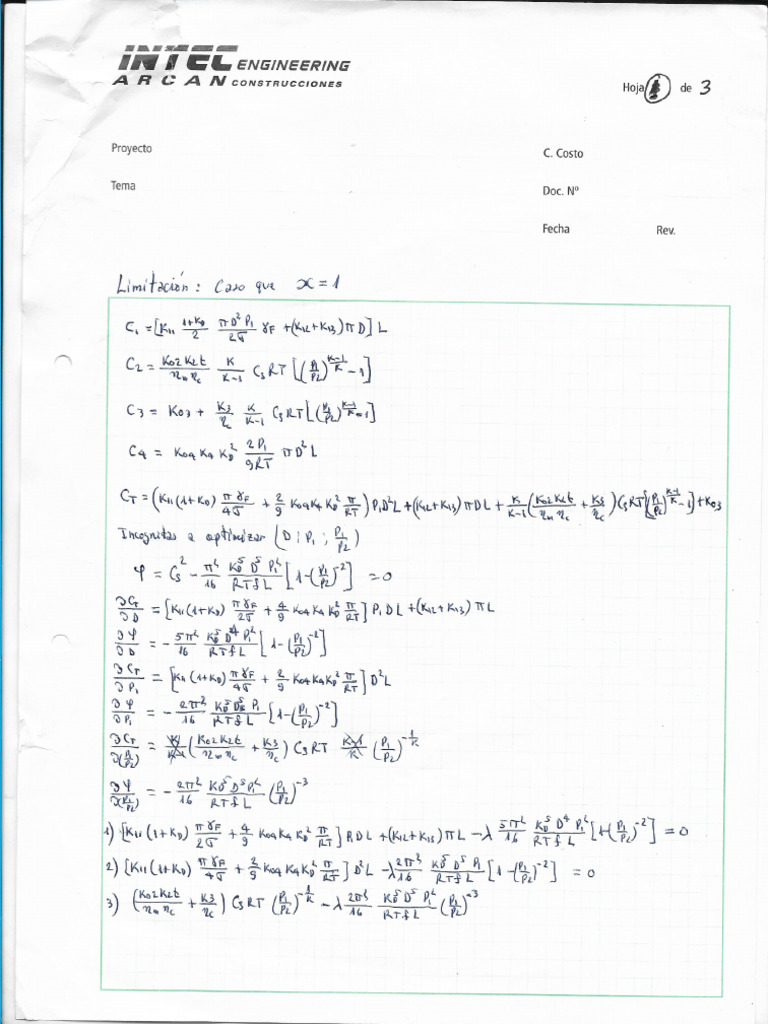 INTEC ENGINEERING
ARCAN CONSTRUCCIONES
Hoja 1 de 3
Proyecto
C. Costo
Tema
Doc. Nº
Fecha Rev.
Limitación: Caso que x=1
C₁ = [K₁₁ (1+K_D)/2 (πD²P₁)/(2σ) γ_F + (K₁₂+K₁₃)πD] L
C₂ = (K₀₂K₂t)/(η_m η_c) K/(K-1) C_S RT [(P₁/P₂)^((K-1)/K) - 1]
C₃ = K₀₃ + K₃/η_c K/(K-1) C_S RT [(P₁/P₂)^((K-1)/K) - 1]
C₄ = K₀₄ K₄ K_D² (2P₁)/(9RT) πD²L
C_T = (K₁₁(1+K_D) (πγ_F)/(4σ) + 2/9 K₀₄K₄K_D² π/(RT)) P₁D²L + (K₁₂+K₁₃)πDL + K/(K-1) ((K₀₂K₂t)/(η_m η_c) + K₃/η_c) C_S RT [(P₁/P₂)^((K-1)/K) - 1] + K₀₃
Incognitas a optimizar (D ; P₁ ; P₁/P₂)
φ = C_S² - π²/16 (K_D⁵ D⁵ P₁²)/(RTfL) [1-(P₁/P₂)⁻²] = 0
∂C_T/∂D = [K₁₁(1+K_D) (πγ_F)/(2σ) + 4/9 K₀₄K₄K_D² π/(RT)] P₁DL + (K₁₂+K₁₃)πL
∂φ/∂D = - 5π²/16 (K_D⁵ D⁴ P₁²)/(RTfL) [1-(P₁/P₂)⁻²]
∂C_T/∂P₁ = [K₁₁(1+K_D) (πγ_F)/(4σ) + 2/9 K₀₄K₄K_D² π/(RT)] D²L
∂φ/∂P₁ = - 2π²/16 (K_D⁵ D⁵ P₁)/(RTfL) [1-(P₁/P₂)⁻²]
∂C_T/∂(P₁/P₂) = K/(K-1) ((K₀₂K₂t)/(η_m η_c) + K₃/η_c) C_S RT (K-1)/K (P₁/P₂)^(-1/K)
∂φ/∂(P₁/P₂) = - 2π²/16 (K_D⁵ D⁵ P₁²)/(RTfL) (P₁/P₂)⁻³
1) [K₁₁(1+K_D) (πγ_F)/(2σ) + 4/9 K₀₄K₄K_D² π/(RT)] P₁DL + (K₁₂+K₁₃)πL - λ 5π²/16 (K_D⁵ D⁴ P₁²)/(RTfL) [1-(P₁/P₂)⁻²] = 0
2) [K₁₁(1+K_D) (πγ_F)/(4σ) + 2/9 K₀₄K₄K_D² π/(RT)] D²L - λ 2π²/16 (K_D⁵ D⁵ P₁)/(RTfL) [1-(P₁/P₂)⁻²] = 0
3) ((K₀₂K₂t)/(η_m η_c) + K₃/η_c) C_S RT (P₁/P₂)^(-1/K) - λ 2π²/16 (K_D⁵ D⁵ P₁²)/(RTfL) (P₁/P₂)⁻³